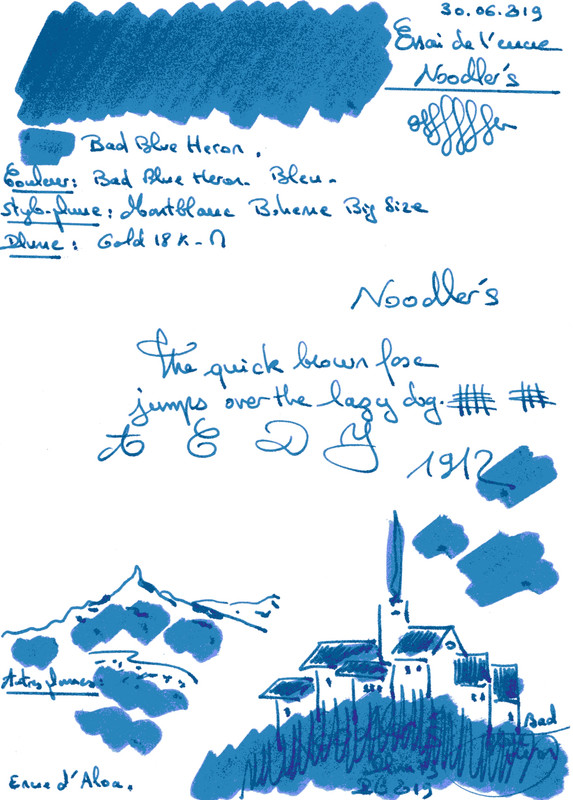 30.06.2019
Essai de l'encre
Noodler's
Bad Blue Heron.
Couleur: Bad Blue Heron. Bleu.
Stylo-plume: Montblanc Boheme Big Size
Plume: Gold 18 K - M
Noodler's
The quick brown fox
jumps over the lazy dog.
A E D Y
1912
Autres plumes:
Bad